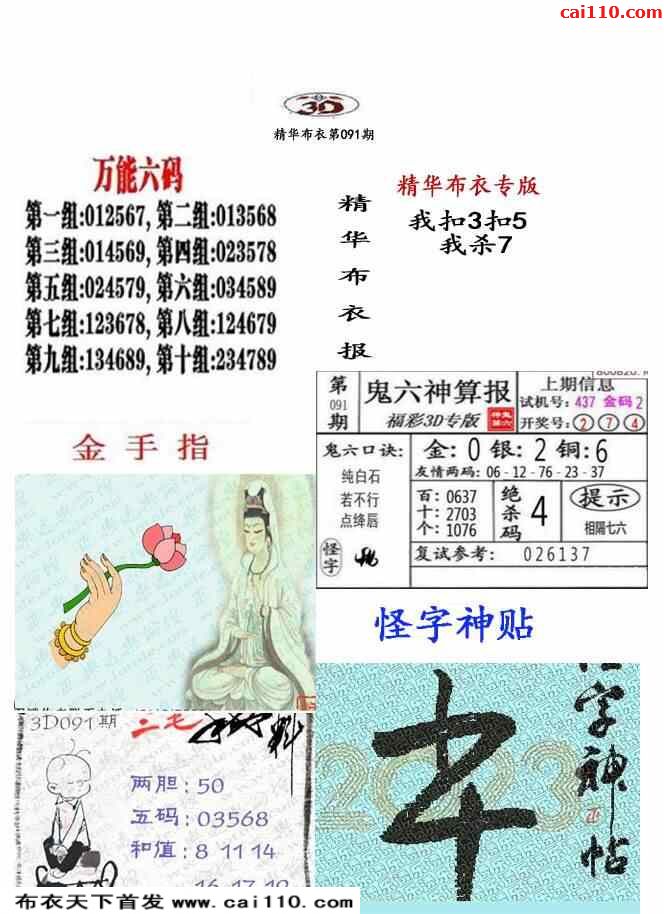 cai110.com
3D
精华布衣第091期
万能六码
第一组:012567,第二组:013568
第三组:014569,第四组:023578
第五组:024579,第六组:034589
第七组:123678,第八组:124679
第九组:134689,第十组:234789
精华布衣报
精华布衣专版
我扣3扣5
我杀7
金手指
第091期
鬼六神算报
福彩3D专版
上期信息
试机号:437 金码2
开奖号:②⑦④
鬼六口诀:
纯白石
若不行
点绛唇
金:0 银:2 铜:6
友情两码:06-12-76-23-37
百:0637
十:2703
个:1076
绝杀码
4
提示
相隔七六
怪字
复试参考: 026137
怪字神贴
字神帖
2023
3D091期
二毛
两胆:50
五码:03568
和值:8 11 14
布衣天下首发 www.cai110.com